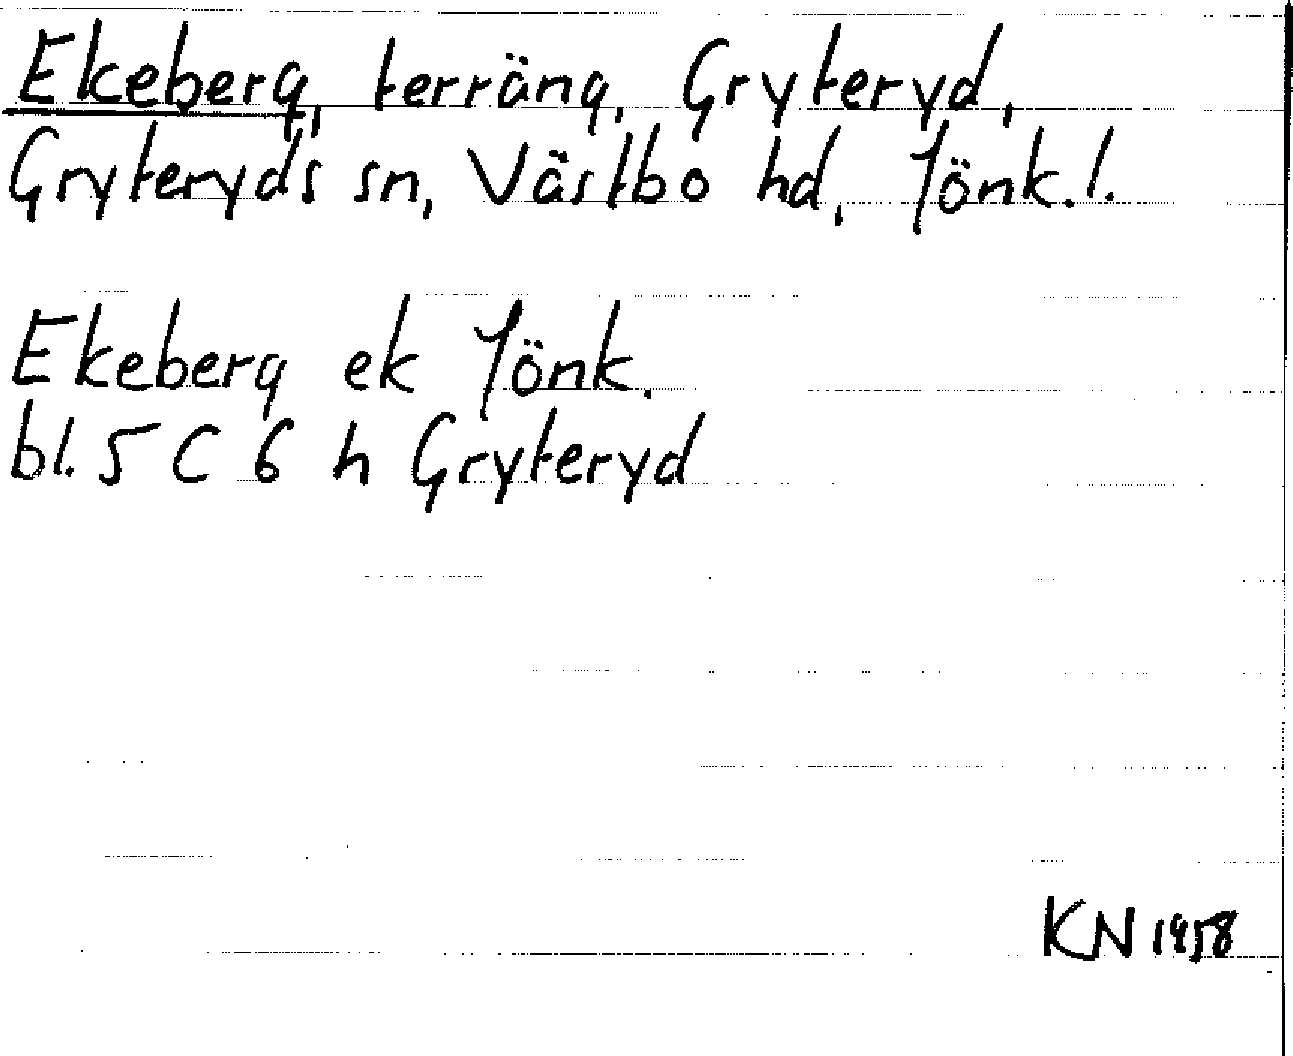 Ekeberg, terräng, Gryteryd,
Gryteryds sn, Västbo hd, Jönk.l.
Ekeberg ek Jönk.
bl. 5 C 6 h Gryteryd
KN 1958